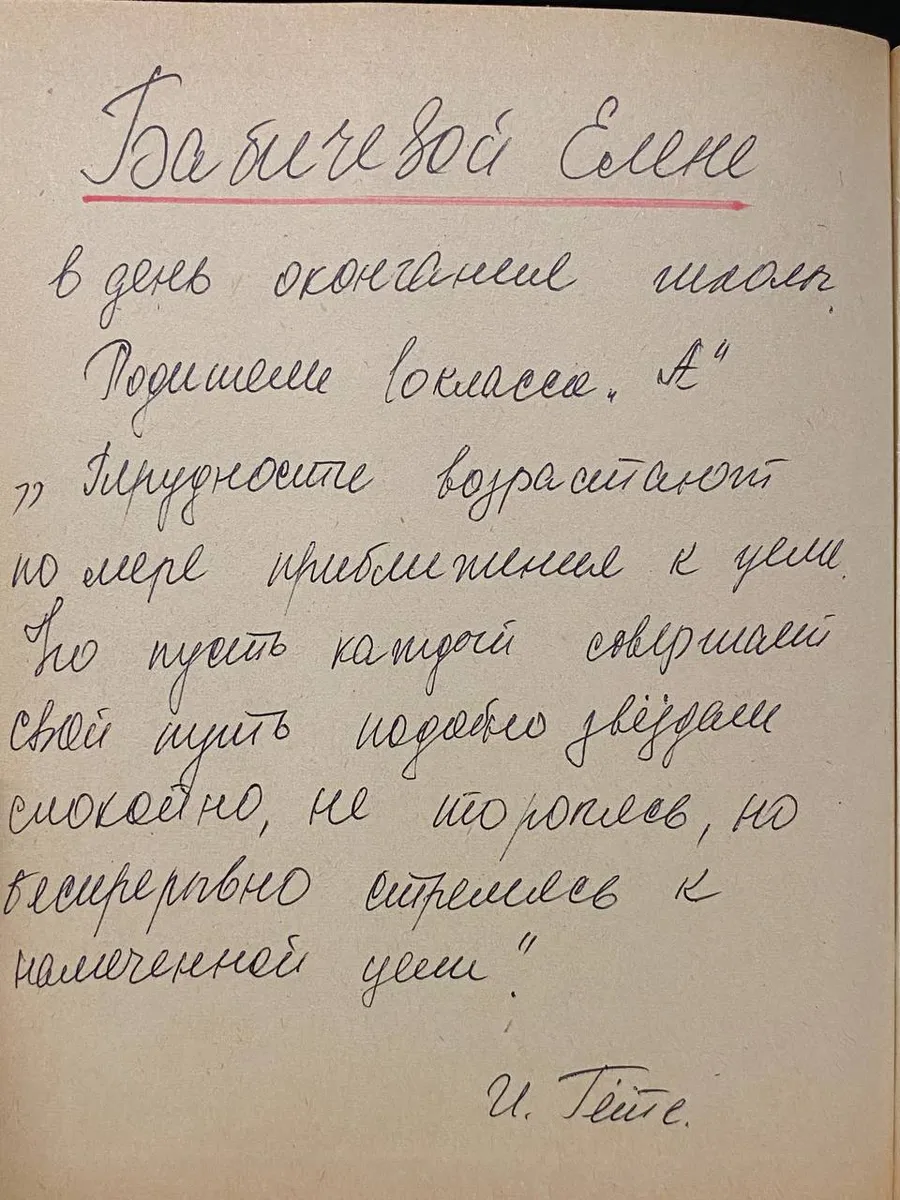 Бабичевой Елене
в день окончания школы.
Родители 10 класса „А“
„Трудности возрастают
по мере приближения к цели.
Но пусть каждый совершает
свой путь подобно звёздам
спокойно, не торопясь, но
беспрерывно стремясь к
намеченной цели“.
И. Гёте.